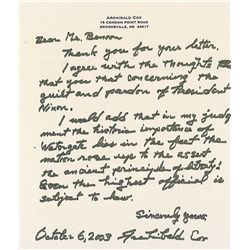 ARCHIBALD COX
78 CONDON POINT ROAD
BROOKSVILLE, ME 04617
Dear Mr. Benson
Thank you for your letter.
I agree with the Thoughts
that you that concerning the
guilt and pardon of President
Nixon.
I would add that in my judg
ment the historic importance of
Watergate lies in the fact the
nation rose up to the assert
the ancient principle of liberty:
Even the highest official is
subject to law.
Sincerely yours
October 6, 2003 Archibald Cox